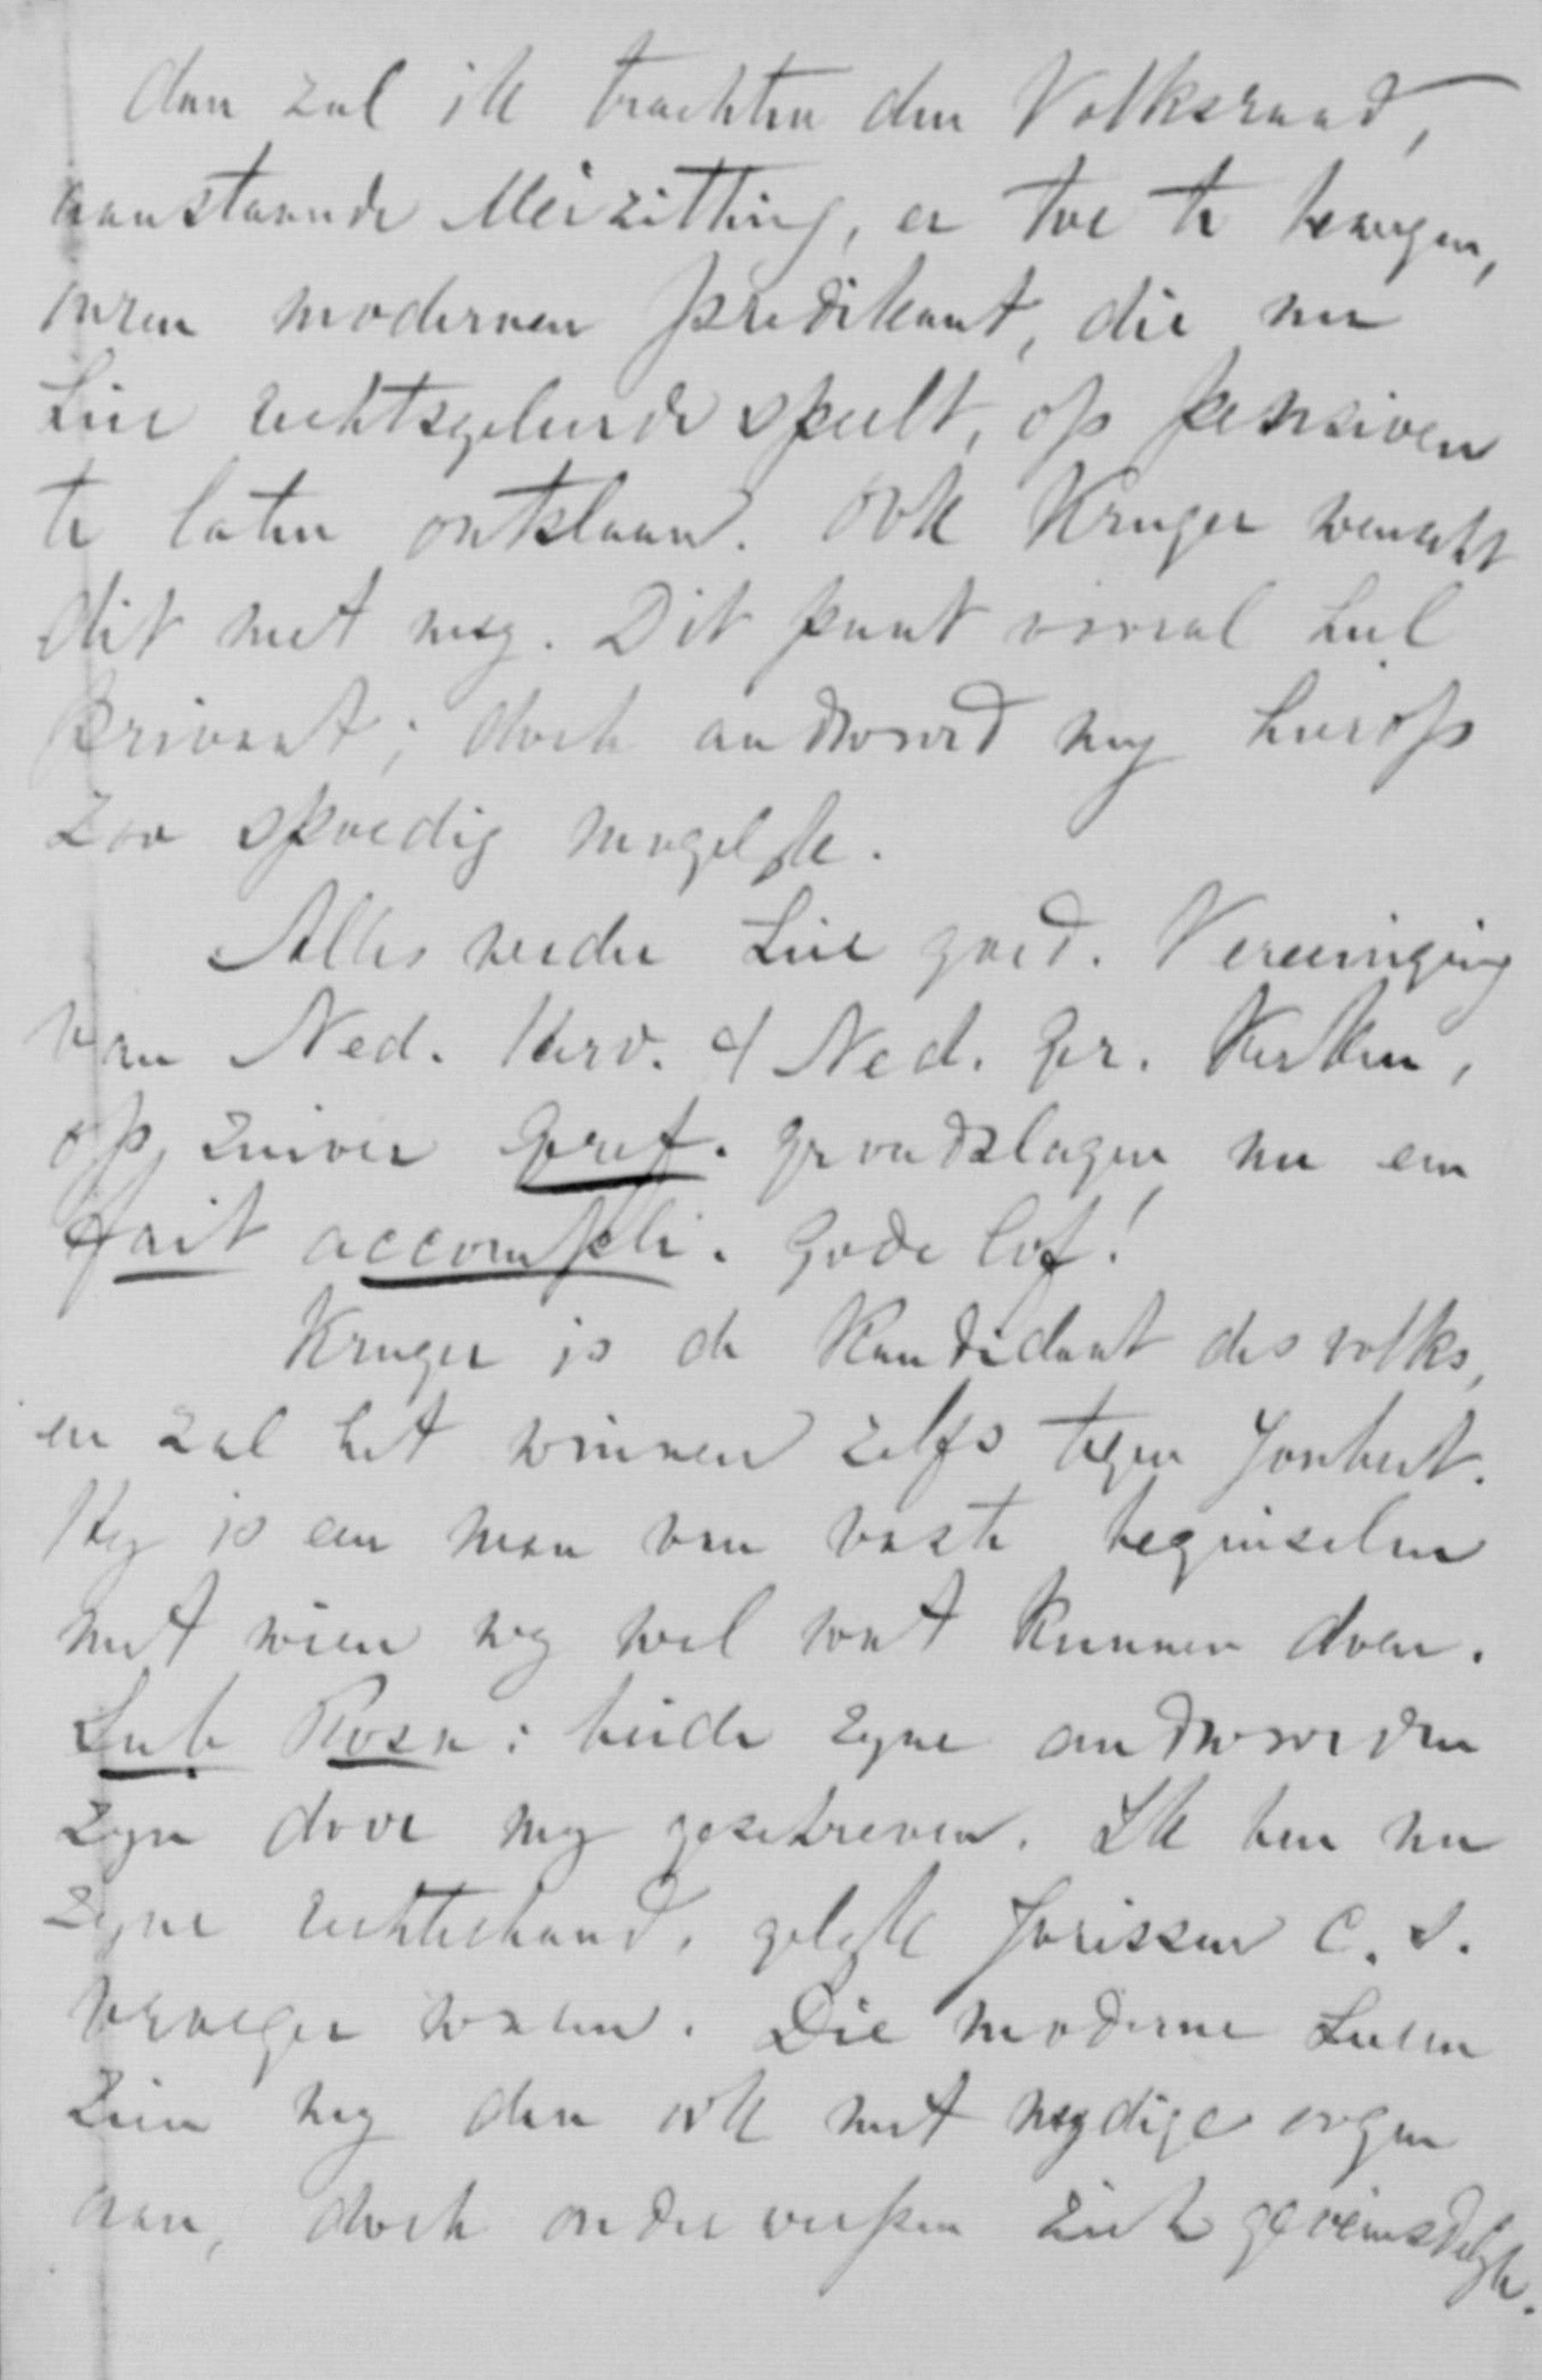 dan zal ik trachten den Volksraad,
aanstaande Meizitting, er toe te brengen,
onzen modernen predikant, die nu
hier rechtsgeleerde speelt, op pensioen
te laten ontslaan. Ook Kruger wenscht
dit met my. Dit punt vooral heel
privaat; doch andwoord my hierop
zoo spoedig mogelyk.
Alles verder hier goed. Vereeniging
van Ned. Herv. & Ned. Ger. Kerken,
op zuiver Geref. grondslagen nu een
fait accompli. Gode lof!
Kruger is de Kandidaat des volks,
en zal het winnen zelfs tegen Joubert.
Hy is een man van vaste beginselen
met wien wy wel wat kunnen doen.
Sub Rosa: beide zyne andwoorden
zyn door my geschreven. Ik ben nu
zyne rechterhand, gelyk Jorissen c. s.
vroeger waren. Die moderne heeren
zien my dan ook met nydige oogen
aan, doch onderwerpen zich geveinsdelyk.